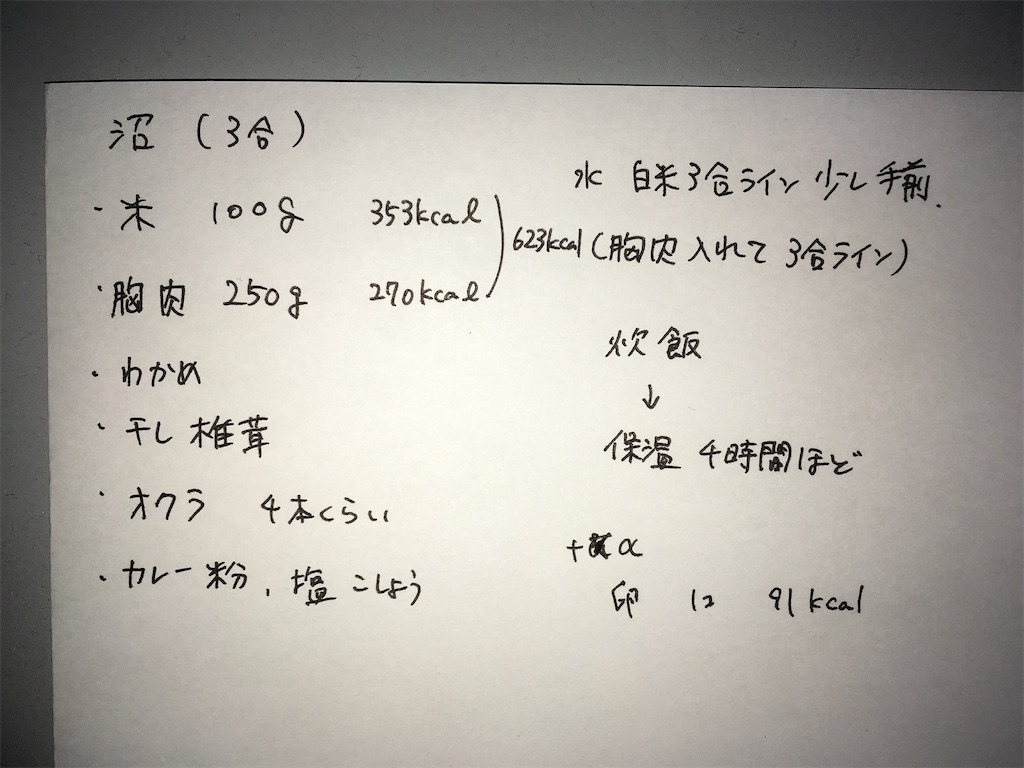 沼 (3合)
・米 100g 353kcal
・胸肉 250g 270kcal
623kcal
・わかめ
・干し椎茸
・オクラ 4本くらい
・カレー粉、塩こしょう
水 白米3合ライン少し手前.
(胸肉入れて3合ライン)
炊飯
↓
保温 4時間ほど
+α
卵 1コ 91kcal